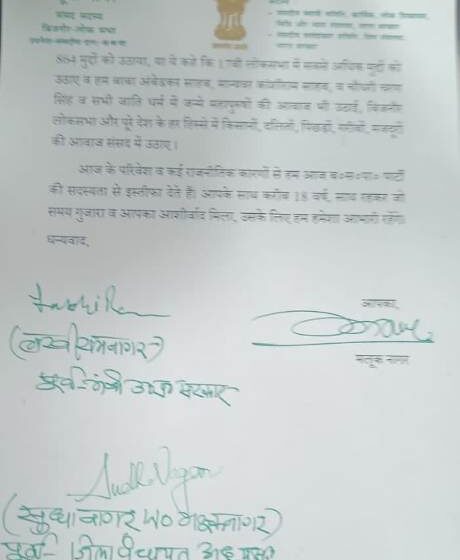 संसद सदस्य
बिजनौर-लोक सभा
884 मुद्दों को उठाया, या ये कहे कि 17वीं लोकसभा में सबसे अधिक मुद्दों को
उठाए व हम बाबा अंबेडकर साहब, मान्यवर कांशीराम साहब, व चौधरी चरण
सिंह व सभी जाति धर्म में जन्मे महापुरुषों की आवाज भी उठाई, बिजनौर
लोकसभा और पूरे देश के हर हिस्से में किसानों, दलितों, पिछड़ों, गरीबों, मजदूरों
की आवाज संसद में उठाए।
आज के परिवेश व कई राजनीतिक कारणों से हम आज ब०स०पा० पार्टी
की सदस्यता से इस्तीफा देते है। आपके साथ करीब 18 वर्ष, साथ रहकर जो
समय गुजारा व आपका आशीर्वाद मिला, उसके लिए हम हमेशा आभारी रहेंगे
धन्यवाद,
आपका,
मलूक नागर
(लखीरामनागर)
पूर्व-मंत्री उ०प्र० सरकार
Sudha Nagar
(सुधा नागर W/o
पूर्व- जिला पंचायत